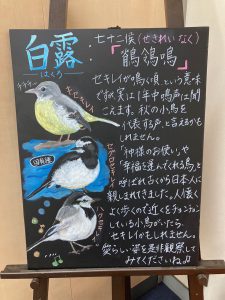 白露
はくろ
七十二候(せきれい なく)
「鶺鴒鳴」
セキレイが鳴く頃、という意味
ですが、実は1年中鳴き声は聞
こえます。秋の小鳥を
代表する声、と言えるかも
しれません。
「神様のお使い」や
「幸福を運んでくれる鳥」と
呼ばれ古くから日本人に
親しまれてきました。人懐く
よく歩くので近くをチョンチョン
している小鳥がいたら、
セキレイかもしれません。
愛らしい姿を是非観察して
みてくださいね♪
キセキレイ
セグロセキレイ
固有種
ハクセキレイ